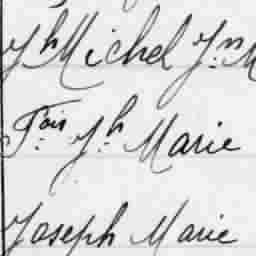 Jh Michel Jn M
Fois Jh Marie
Joseph Marie